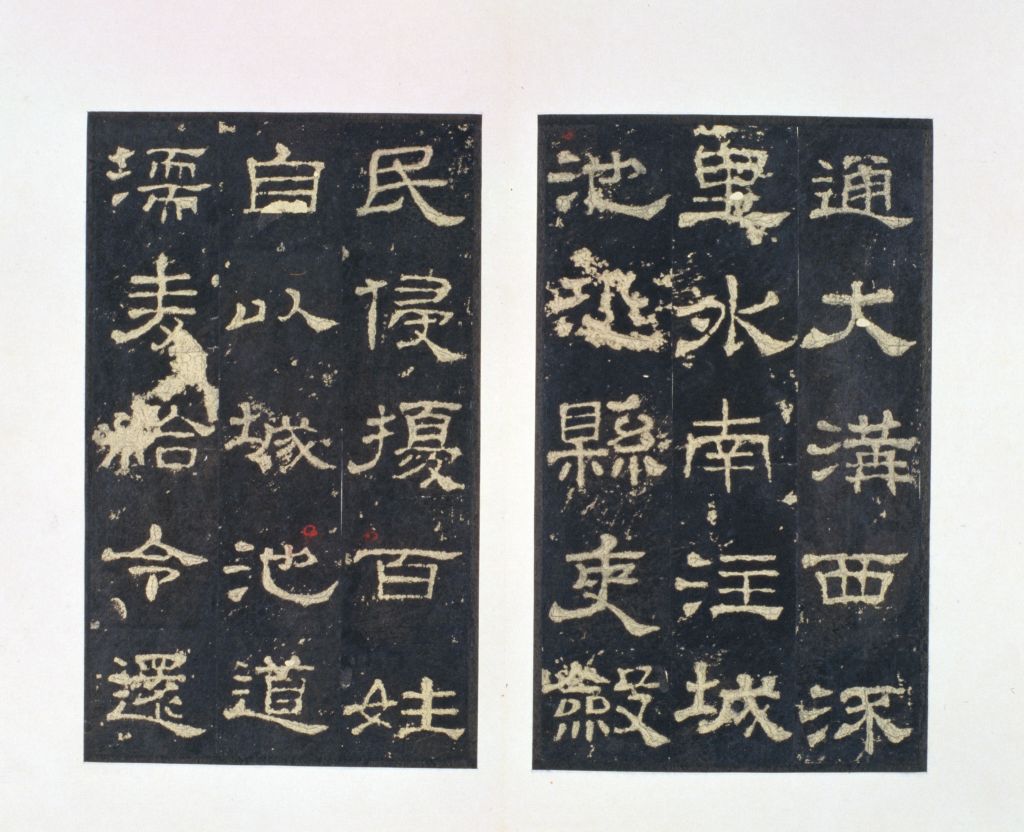 通大溝西流
里外南注城
池恐縣吏斂
民侵擾百姓
自以城池道
壖麥給令還